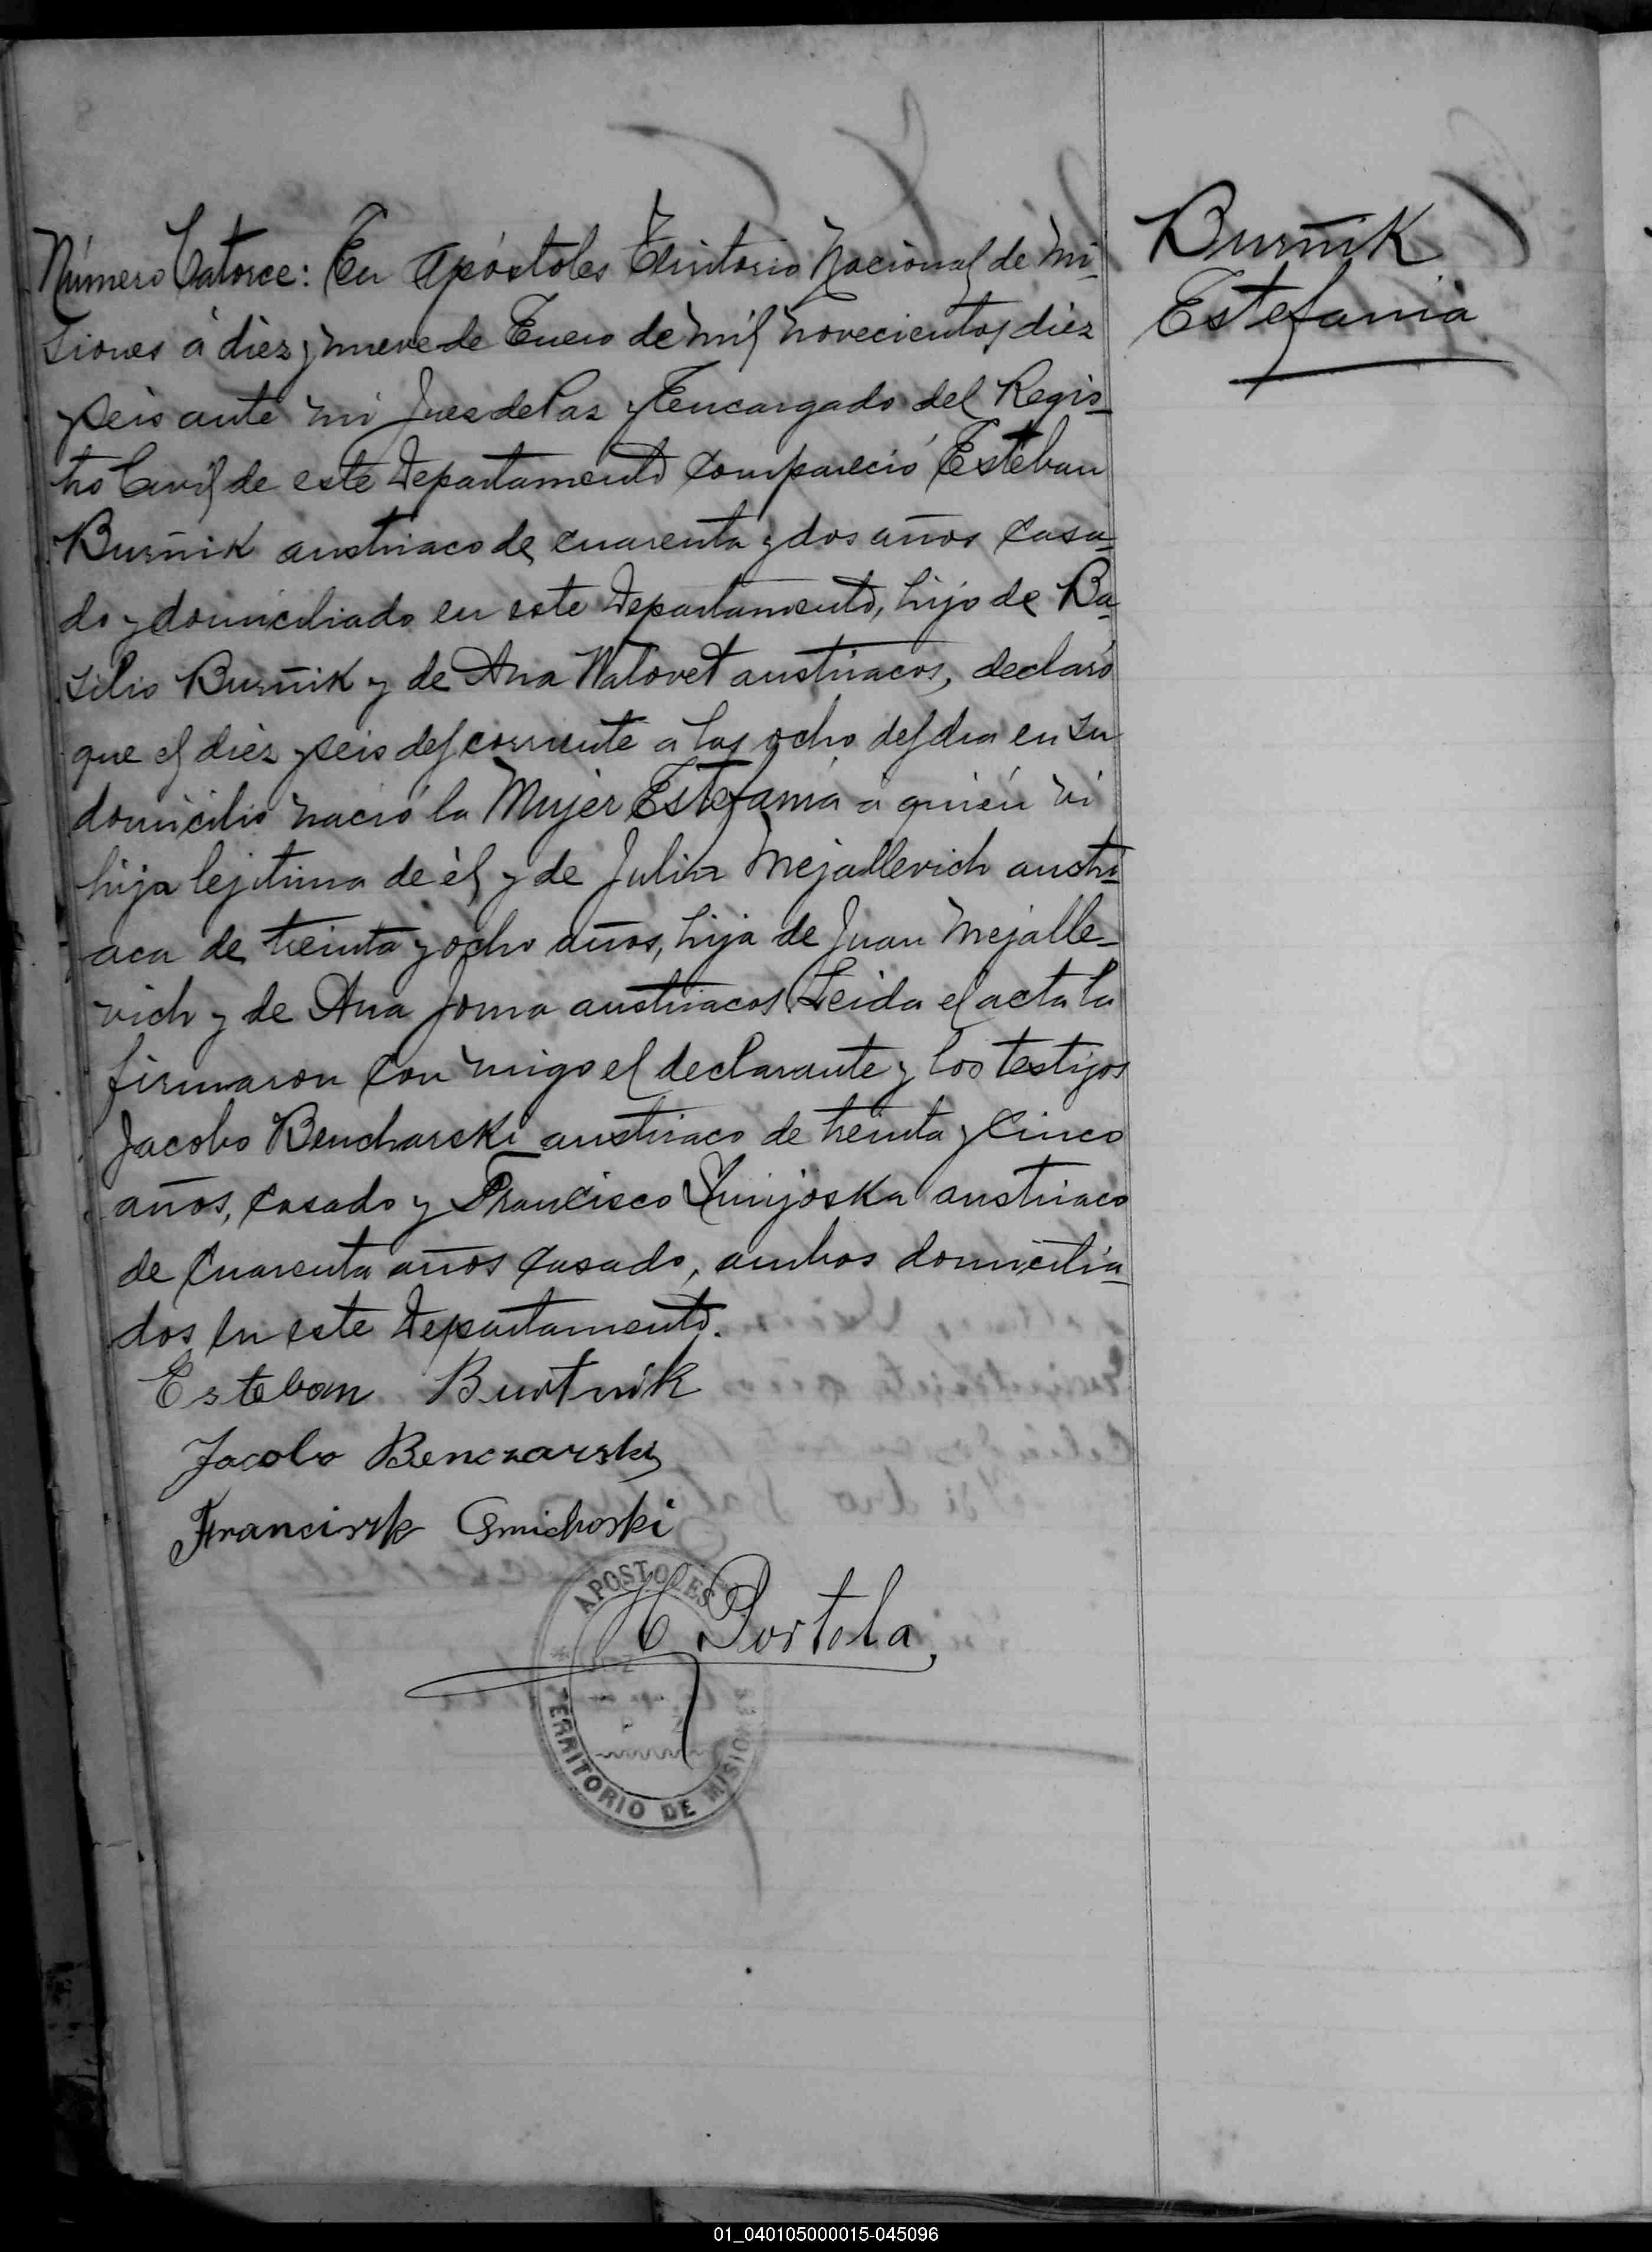 Burñik
Estefania
Número Catorce: En Apóstoles Territorio Nacional de Mi-
siones á diez y nueve de Enero de mil novecientos diez
y seis ante mi Juez de Paz y Encargado del Regis-
tro Civil de este Departamento Compareció Esteban
Burñik austriaco de cuarenta y dos años Casa-
do y domiciliado en este Departamento, hijo de Ba-
silio Burñik y de Ana Watovet austriacos, declaró
que el diez y seis del corriente a las ocho del dia en su
domicilio nació la Mujer Estefania a quién vi
hija lejitima de él y de Julia Mejallevich austri-
aca de treinta y ocho años, hija de Juan Mejalle-
vich y de Ana Joma austriacos Leida el acta la
firmaron Con migo el declarante y los testigos
Jacobo Bencharski austriaco de treinta y Cinco
años, Casado y Francisco austriaco
de Cuarenta años Casado, ambos domicilia-
dos en este Departamento.
Esteban Burtnik
Jacobo Benczarski
Franciszk Gmichoski
H Portela
APOSTOLES
TERRITORIO DE MISIONES
01_040105000015-045096